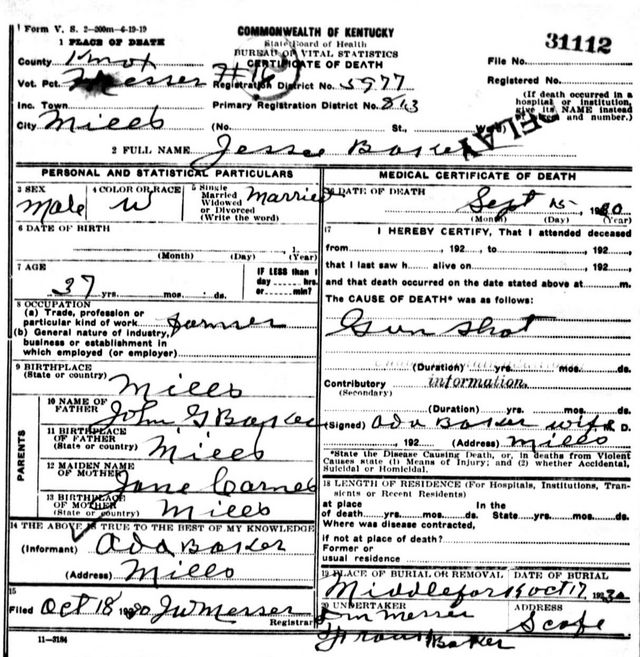 Form V. S. 2-200m-6-19-19
COMMONWEALTH OF KENTUCKY
State Board of Health
BUREAU OF VITAL STATISTICS
CERTIFICATE OF DEATH
31112
1 PLACE OF DEATH
County Knox
File No.
Vot. Pct. Messer #16 Registration District No. 5977
Registered No.
(If death occurred in a hospital or institution, give its NAME instead of street and number.)
Inc. Town Primary Registration District No. 813
City Mills (No. St., Ward)
DELAY
2 FULL NAME Jesse Baker
PERSONAL AND STATISTICAL PARTICULARS
3 SEX Male
4 COLOR OR RACE W
5 Single
Married
Widowed
or Divorced
(Write the word)
Married
6 DATE OF BIRTH
(Month) (Day) (Year)
7 AGE
37 yrs. mos. ds.
IF LESS than 1
day hrs.
or min?
8 OCCUPATION
(a) Trade, profession or
particular kind of work farmer
(b) General nature of industry,
business or establishment in
which employed (or employer)
9 BIRTHPLACE
(State or country) Mills
PARENTS
10 NAME OF
FATHER John G Baker
11 BIRTHPLACE
OF FATHER
(State or country) Mills
12 MAIDEN NAME
OF MOTHER Jane
13 BIRTHPLACE
OF MOTHER
(State or country) Mills
14 THE ABOVE IS TRUE TO THE BEST OF MY KNOWLEDGE
(Informant) Ada Baker
(Address) Mills
15
Filed Oct 18 1920 J W Messer
Registrar
11-3184
MEDICAL CERTIFICATE OF DEATH
16 DATE OF DEATH
Sept 15 1920
(Month) (Day) (Year)
17 I HEREBY CERTIFY, That I attended deceased
from , 192 to , 192
that I last saw h alive on , 192
and that death occurred on the date stated above at m.
The CAUSE OF DEATH* was as follows:
Gun shot
(Duration) yrs. mos. ds.
Contributory information
(Secondary)
(Duration) yrs. mos. ds.
(Signed) Ada Baker wife D.
, 192 (Address) Mills
*State the Disease Causing Death, or, in deaths from Violent
Causes state (1) Means of Injury; and (2) whether Accidental,
Suicidal or Homicidal.
18 LENGTH OF RESIDENCE (For Hospitals, Institutions, Tran-
sients or Recent Residents)
at place In the
of death yrs. mos. ds. State yrs. mos. ds.
Where was disease contracted,
if not at place of death?
Former or
usual residence
19 PLACE OF BURIAL OR REMOVAL DATE OF BURIAL
Middlefork Oct 17
20 UNDERTAKER ADDRESS
Messer
Baker